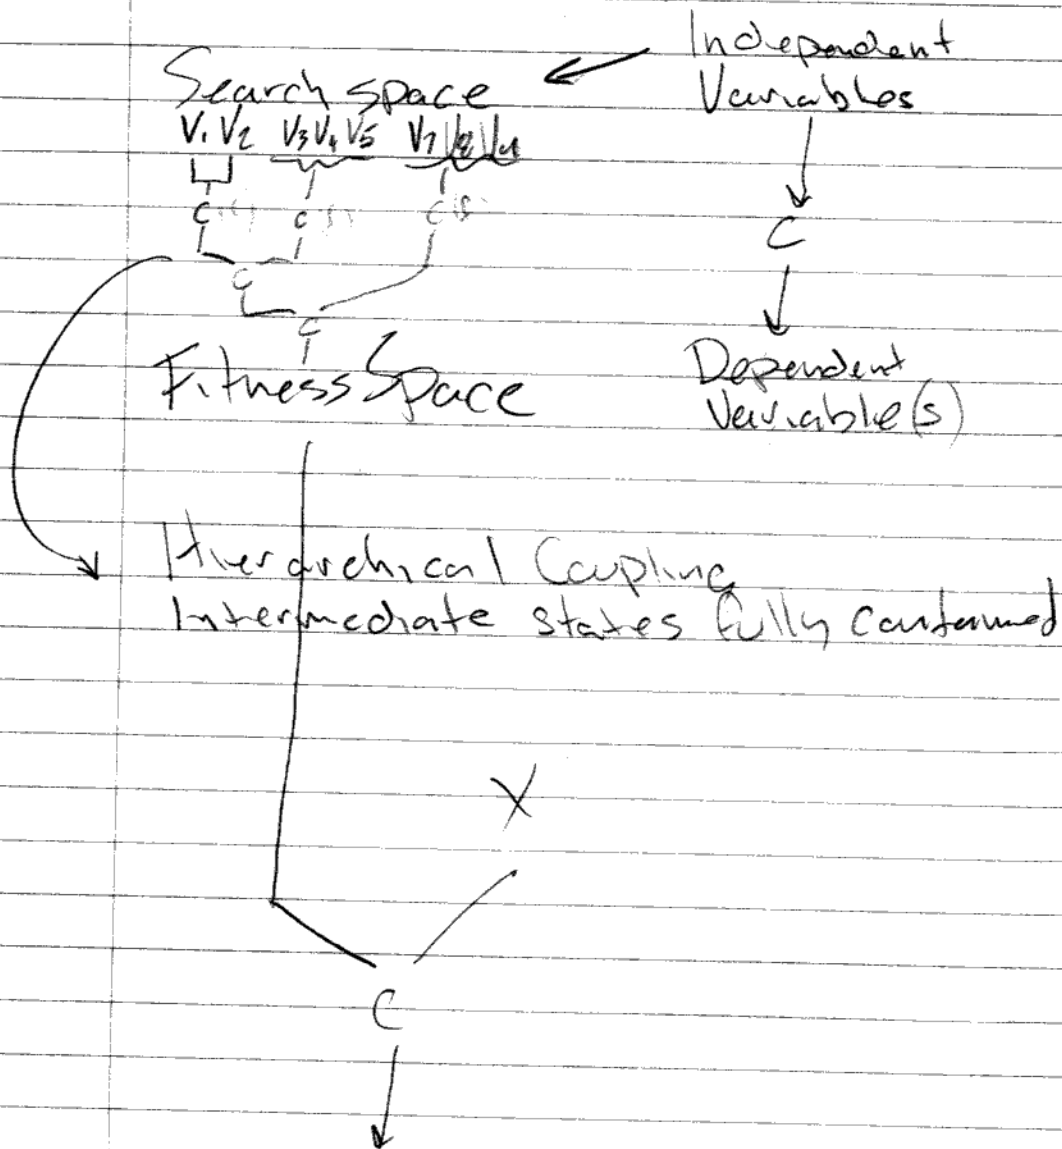 Independent
Variables
Search space
V1 V2 V3 V4 V5 V7 V8
C C C
C
C
C
Fitness Space
Dependent
Variable(s)
Hierarchical Coupling
Intermediate states fully contained
X
C